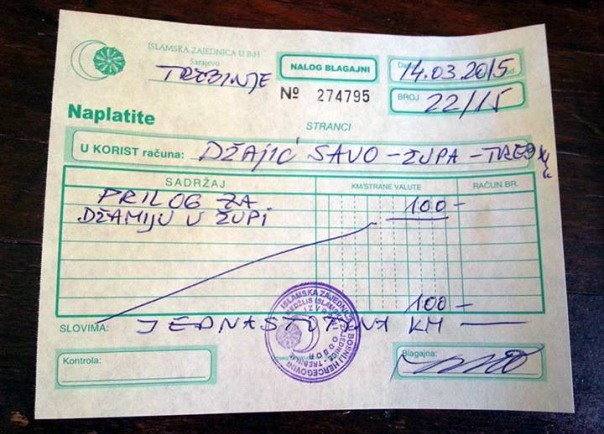 ISLAMSKA ZAJEDNICA U BiH
Sarajevo
TREBINJE
NALOG BLAGAJNI
Nº 274795
14.03.2015
BROJ 22/15
Naplatite
STRANCI
U KORIST računa: DŽAJIĆ SAVO - ŽUPA - TREB
SADRŽAJ KM/STRANE VALUTE RAČUN BR.
PRILOG ZA 100-
DŽAMIJU U ŽUPI
100-
SLOVIMA: JEDNASTOTINA KM
Kontrola:
Blagajna: